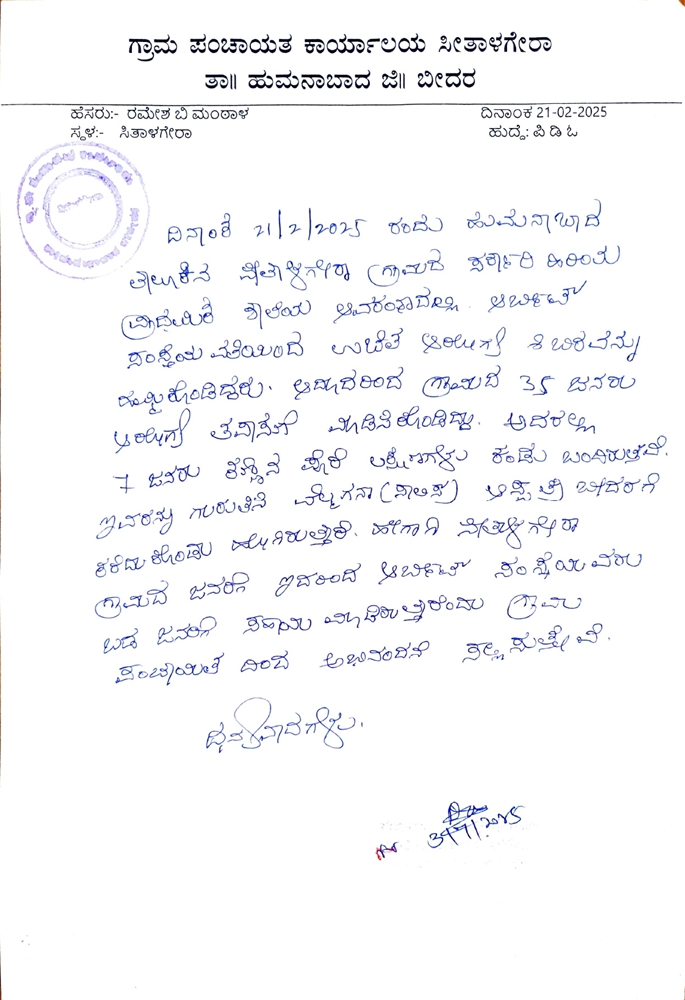 ಗ್ರಾಮ ಪಂಚಾಯತ ಕಾರ್ಯಾಲಯ ಸೀತಾಳಗೇರಾ
ತಾ॥ ಹುಮನಾಬಾದ ಜಿ॥ ಬೀದರ
ಹೆಸರು:- ರಮೇಶ ಬಿ ಮಂಠಾಳ
ದಿನಾಂಕ 21-02-2025
ಸ್ಥಳ:- ಸಿತಾಳಗೇರಾ
ಹುದ್ದೆ: ಪಿ ಡಿ ಓ
ದಿನಾಂಕ 21/2/2025 ರಂದು ಹುಮನಾಬಾದ
ತಾಲೂಕಿನ ಸೀತಾಳಗೇರಾ ಗ್ರಾಮದ ಸರ್ಕಾರಿ ಹಿರಿಯ
ಪ್ರಾಥಮಿಕ ಶಾಲೆಯ ಆವರಣದಲ್ಲಿ ಆರ್ಬಿಟ್
ಸಂಸ್ಥೆಯ ವತಿಯಿಂದ ಉಚಿತ ಆರೋಗ್ಯ ಶಿಬಿರವನ್ನು
ಹಮ್ಮಿಕೊಂಡಿದ್ದರು. ಆದ್ದರಿಂದ ಗ್ರಾಮದ 35 ಜನರು
ಆರೋಗ್ಯ ತಪಾಸಣೆ ಮಾಡಿಸಿಕೊಂಡಿದ್ದು. ಅದರಲ್ಲಿ
7 ಜನರು ಕಣ್ಣಿನ ಪೈಕಿ ಲಕ್ಷಣಗಳು ಕಂಡು ಬಂದಿರುತ್ತವೆ.
ಇವರನ್ನು ಗುರುತಿಸಿ ಆಸ್ಪತ್ರೆ ಬೀದರಗೆ
ಕರೆದುಕೊಂಡು ಹೋಗಿರುತ್ತಾರೆ. ಹೀಗಾಗಿ ಸೀತಾಳಗೇರಾ
ಗ್ರಾಮದ ಜನರಿಗೆ ಇದರಿಂದ ಆರ್ಬಿಟ್ ಸಂಸ್ಥೆಯವರು
ಬಡ ಜನರಿಗೆ ಸಹಾಯ ಮಾಡಿರುತ್ತಾರೆಂದು ಗ್ರಾಮ
ಪಂಚಾಯಿತ ದಿಂದ ಅಭಿನಂದನೆ ಸಲ್ಲಿಸುತ್ತೇವೆ.
ಧನ್ಯವಾದಗಳು.